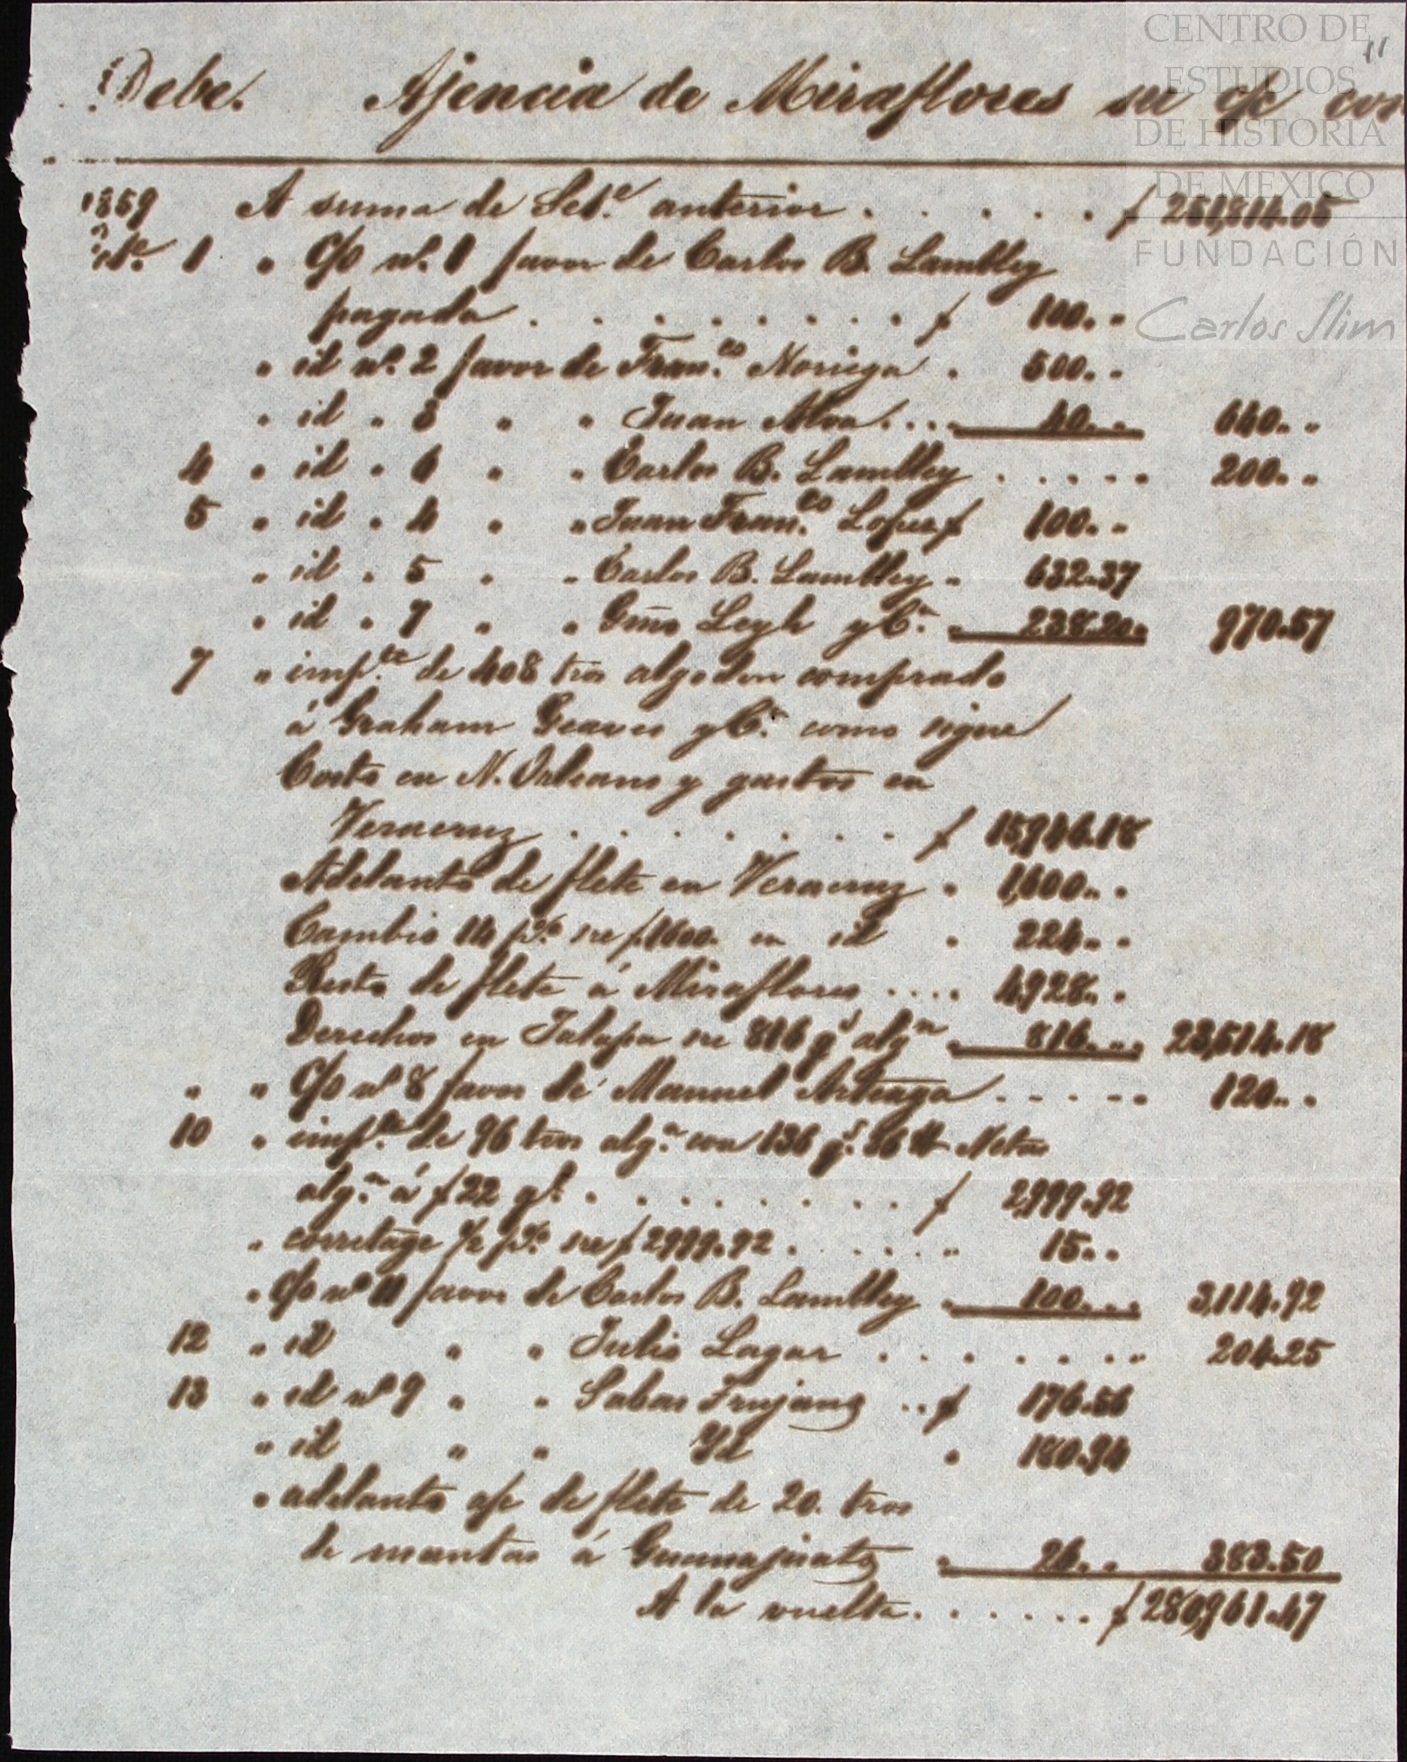 CENTRO DE
ESTUDIOS
DE HISTORIA
DE MEXICO
FUNDACIÓN
Carlos Slim
11
Debe. Ajencia de Miraflores su c/c con
1859 A suma de Set.e anterior . . . . . . $ 251,814.05
1 " C/O nº. 1 favor de Carlos B. Lambley
pagada . . . . . . . . . $ 100. "
" id nº. 2 favor de Fran.co Noriega . 500. "
" id " 3 " " Juan Alva . . . . 40. " 640. "
4 " id " 6 " " Carlos B. Lambley . . . . . 200. "
5 " id " 4 " " Juan Fran.co Lopez $ 100. "
" id " 5 " " Carlos B. Lambley " 632.37
" id " 7 " " Gmo Leyh y C.a " 238.20 970.57
7 " imp.te de 408 tros algodon comprado
á Graham Geaves y C.a como sigue
Costo en N. Orleans y gastos en
Veracruz . . . . . . . . $ 15,946.18
Adelanto de flete en Veracruz " 1,600. "
Cambio 14 p.% sre $1600. en id " 224. "
Resto de flete á Miraflores . . . . 4,928. "
Derechos en Jalapa sre 816 q.s alg.n " 816. " 23,514.18
" " C/O nº 8 favor de Manuel Arteaga . . . . . 120. "
10 " imp.te de 96 tros alg.n con 136 q.s 36 lb Netas
alg.n á $22 q.l . . . . . . . . . $ 2,999.92
" corretage ½ p.% sre $2999.92 . . . . . " 15. "
" C/O nº 11 favor de Carlos B. Lambley " 100. " 3,114.92
12 " id " " Julio Lagar . . . . . . . 204.25
13 " id nº 9 " " Sabas Trujano . . $ 176.56
" id " " Yd " 180.94
" adelanto a/c de flete de 20. tros
de mantas á Guanajuato " 26. " 383.50
A la vuelta . . . . . . $ 280,961.47